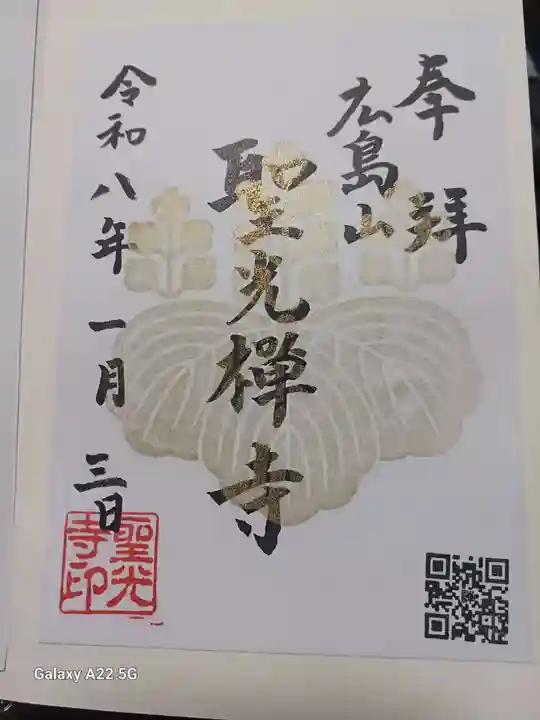 奉拝
広島山
聖光禅寺
令和八年 一月 三日
聖光
寺印
Galaxy A22 5G